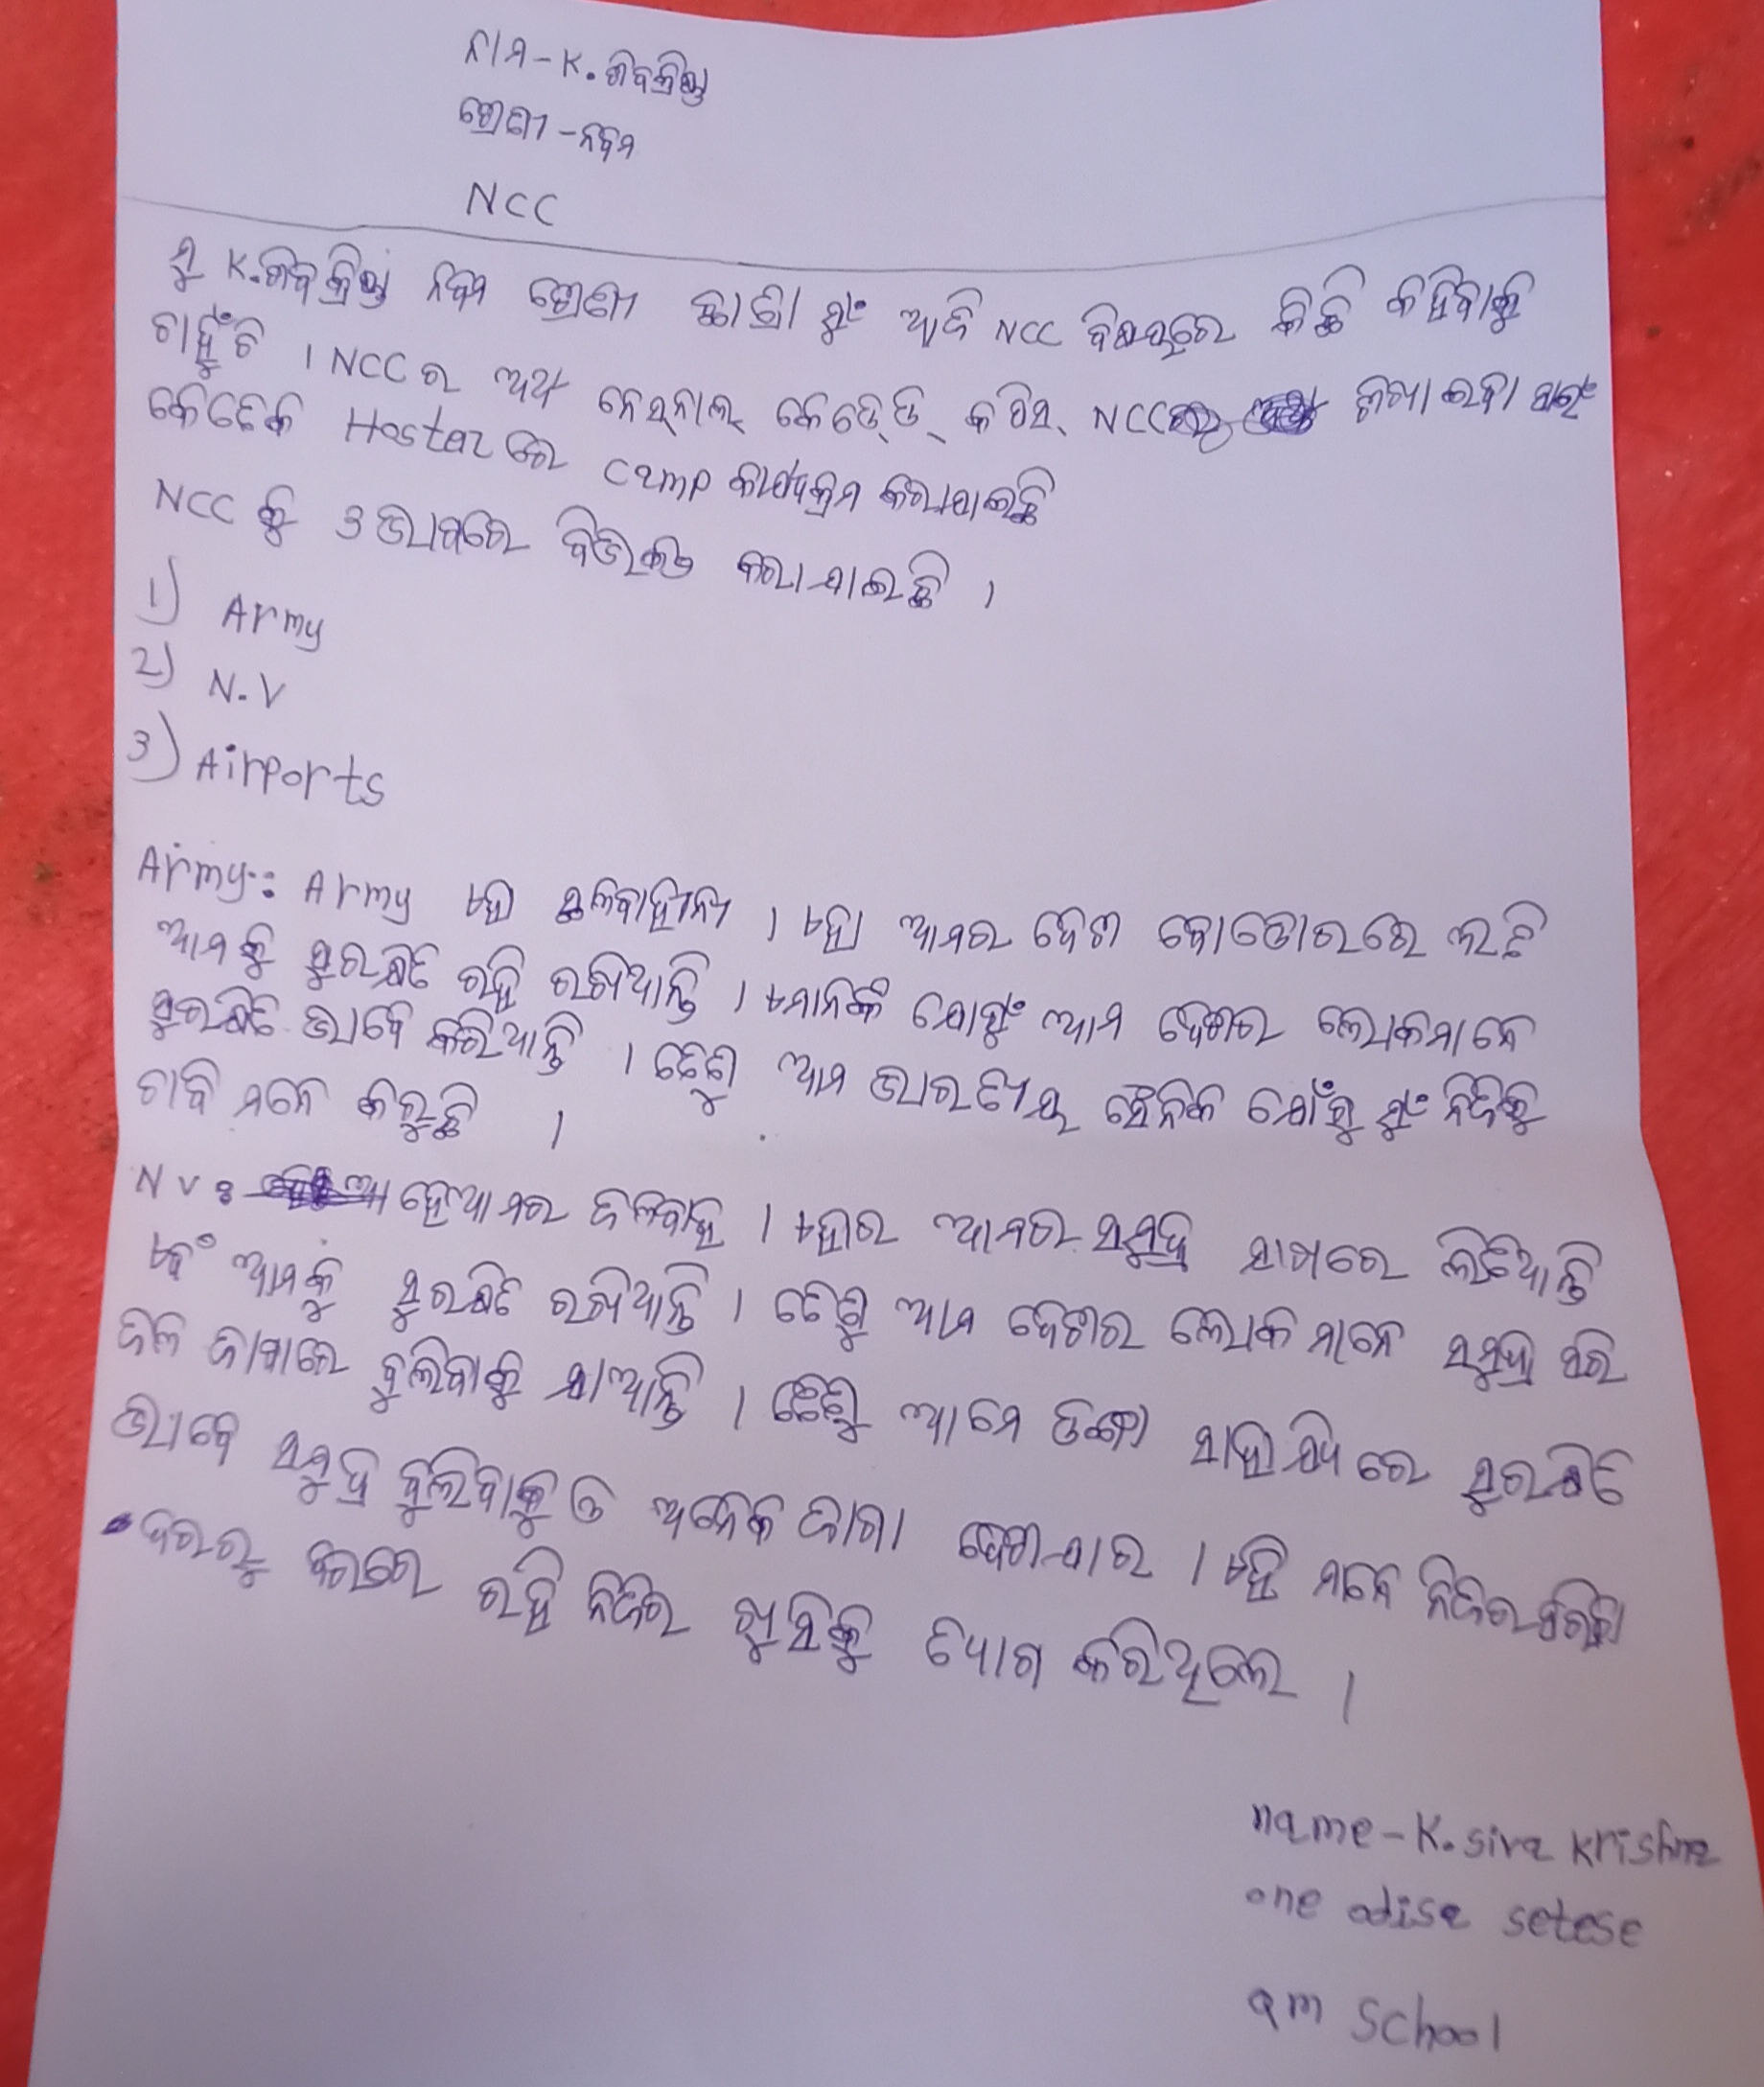 ନାମ - K. ଶିବକ୍ରିଷ୍ଣ
ଶ୍ରେଣୀ - ନବମ
NCC
ମୁ K. ଶିବକ୍ରିଷ୍ଣ ନବମ ଶ୍ରେଣୀ ଛାତ୍ରୀ ମୁଂ ଆଜି NCC ବିଷୟରେ କିଛି କହିବାକୁ
ଚାହୁଁଚି । NCC ର ଅର୍ଥ ନେସ୍ନାଲ୍ କେଡେ୍ଡ୍ କପିସ୍ NCC ଶିଖାଇବା ପାଇଂ
କେତେକ Hostel ରେ Camp କାର୍ଯ୍ୟକ୍ରମ କରାଯାଇଛି
NCC କୁ ୩ ଭାଗରେ ବିଭକ୍ତ କରାଯାଇଛି ।
1) Army
2) N.V
3) Airports
Army:: Army ଏହା ସ୍ଥଳବାହୀନୀ । ଏହା ଆମର ଦେଶ ବୋଡୋରରେ ଲଢି
ଆମକୁ ସୁରକ୍ଷିତ ରହି ରଖିଥାନ୍ତି । ଏମାନଙ୍କ ଯୋଗୁଂ ଆମ ଦେଶର ଲୋକମାନେ
ସୁରକ୍ଷିତ ଭାବେ କରିଥାନ୍ତି । ତେଣୁ ଆମ ଭାରତୀୟ ସୈନିକ ଯୋଁଗୁ ମୁଂ ନିଜକୁ
ଗାବି ମନେ କରୁଛି ।
N V: ହେଆମର ଜଳବାହ । ଏହାର ଆମର ସମୁଦ୍ର ମାଝରେ ଲଢିଥାନ୍ତି
ଏବଂ ଆମକୁ ସୁରକ୍ଷିତ ରଖିଥାନ୍ତି । ତେଣୁ ଆମ ଦେଶର ଲୋକ ମାନେ ସମୁଦ୍ର ପରି
ଜଳ ଜାଗାରେ ବୁଲିବାକୁ ଯାଆନ୍ତି । ତେଣୁ ଆମେ ତାଙ୍କ ସାହାଯ୍ୟରେ ସୁରକ୍ଷିତ
ଭାବେ ସମୁଦ୍ର ବୁଲିବାକୁ ଓ ଅନେକ ଜାଗା ଦେଖାଯାଏ । ଏହି ମାନେ ନିଜର
ରହି ନିଜର ଖୁସିକୁ ତ୍ୟାଗ କରିଥିଲେ ।
name - K. siva Krishna
one odisa setese
qm School